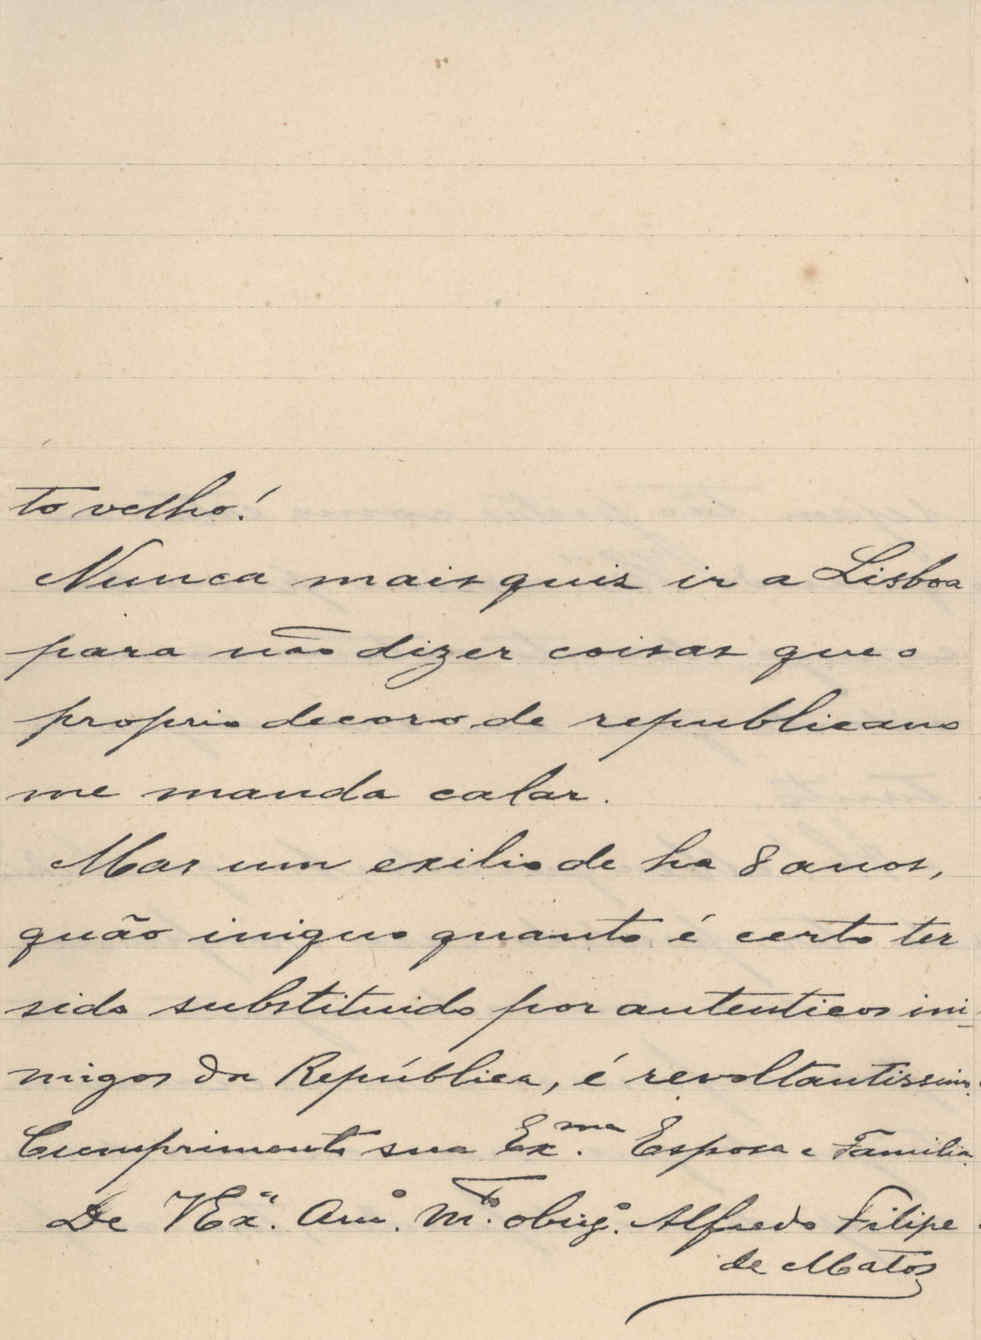 to velho!
Nunca mais quis ir a Lisboa
para não dizer coisas que o
proprio decoro de republicano
me manda calar.
Mas um exilio de ha 8 anos,
quão iniquo quanto é certo ter
sido substituido por autenticos ini-
migos da República, é revoltantissimo.
Cumprimento sua Exma. Esposa e Familia.
De VExª. Amº. Mtº. obrigº. Alfredo Filipe
de Matos